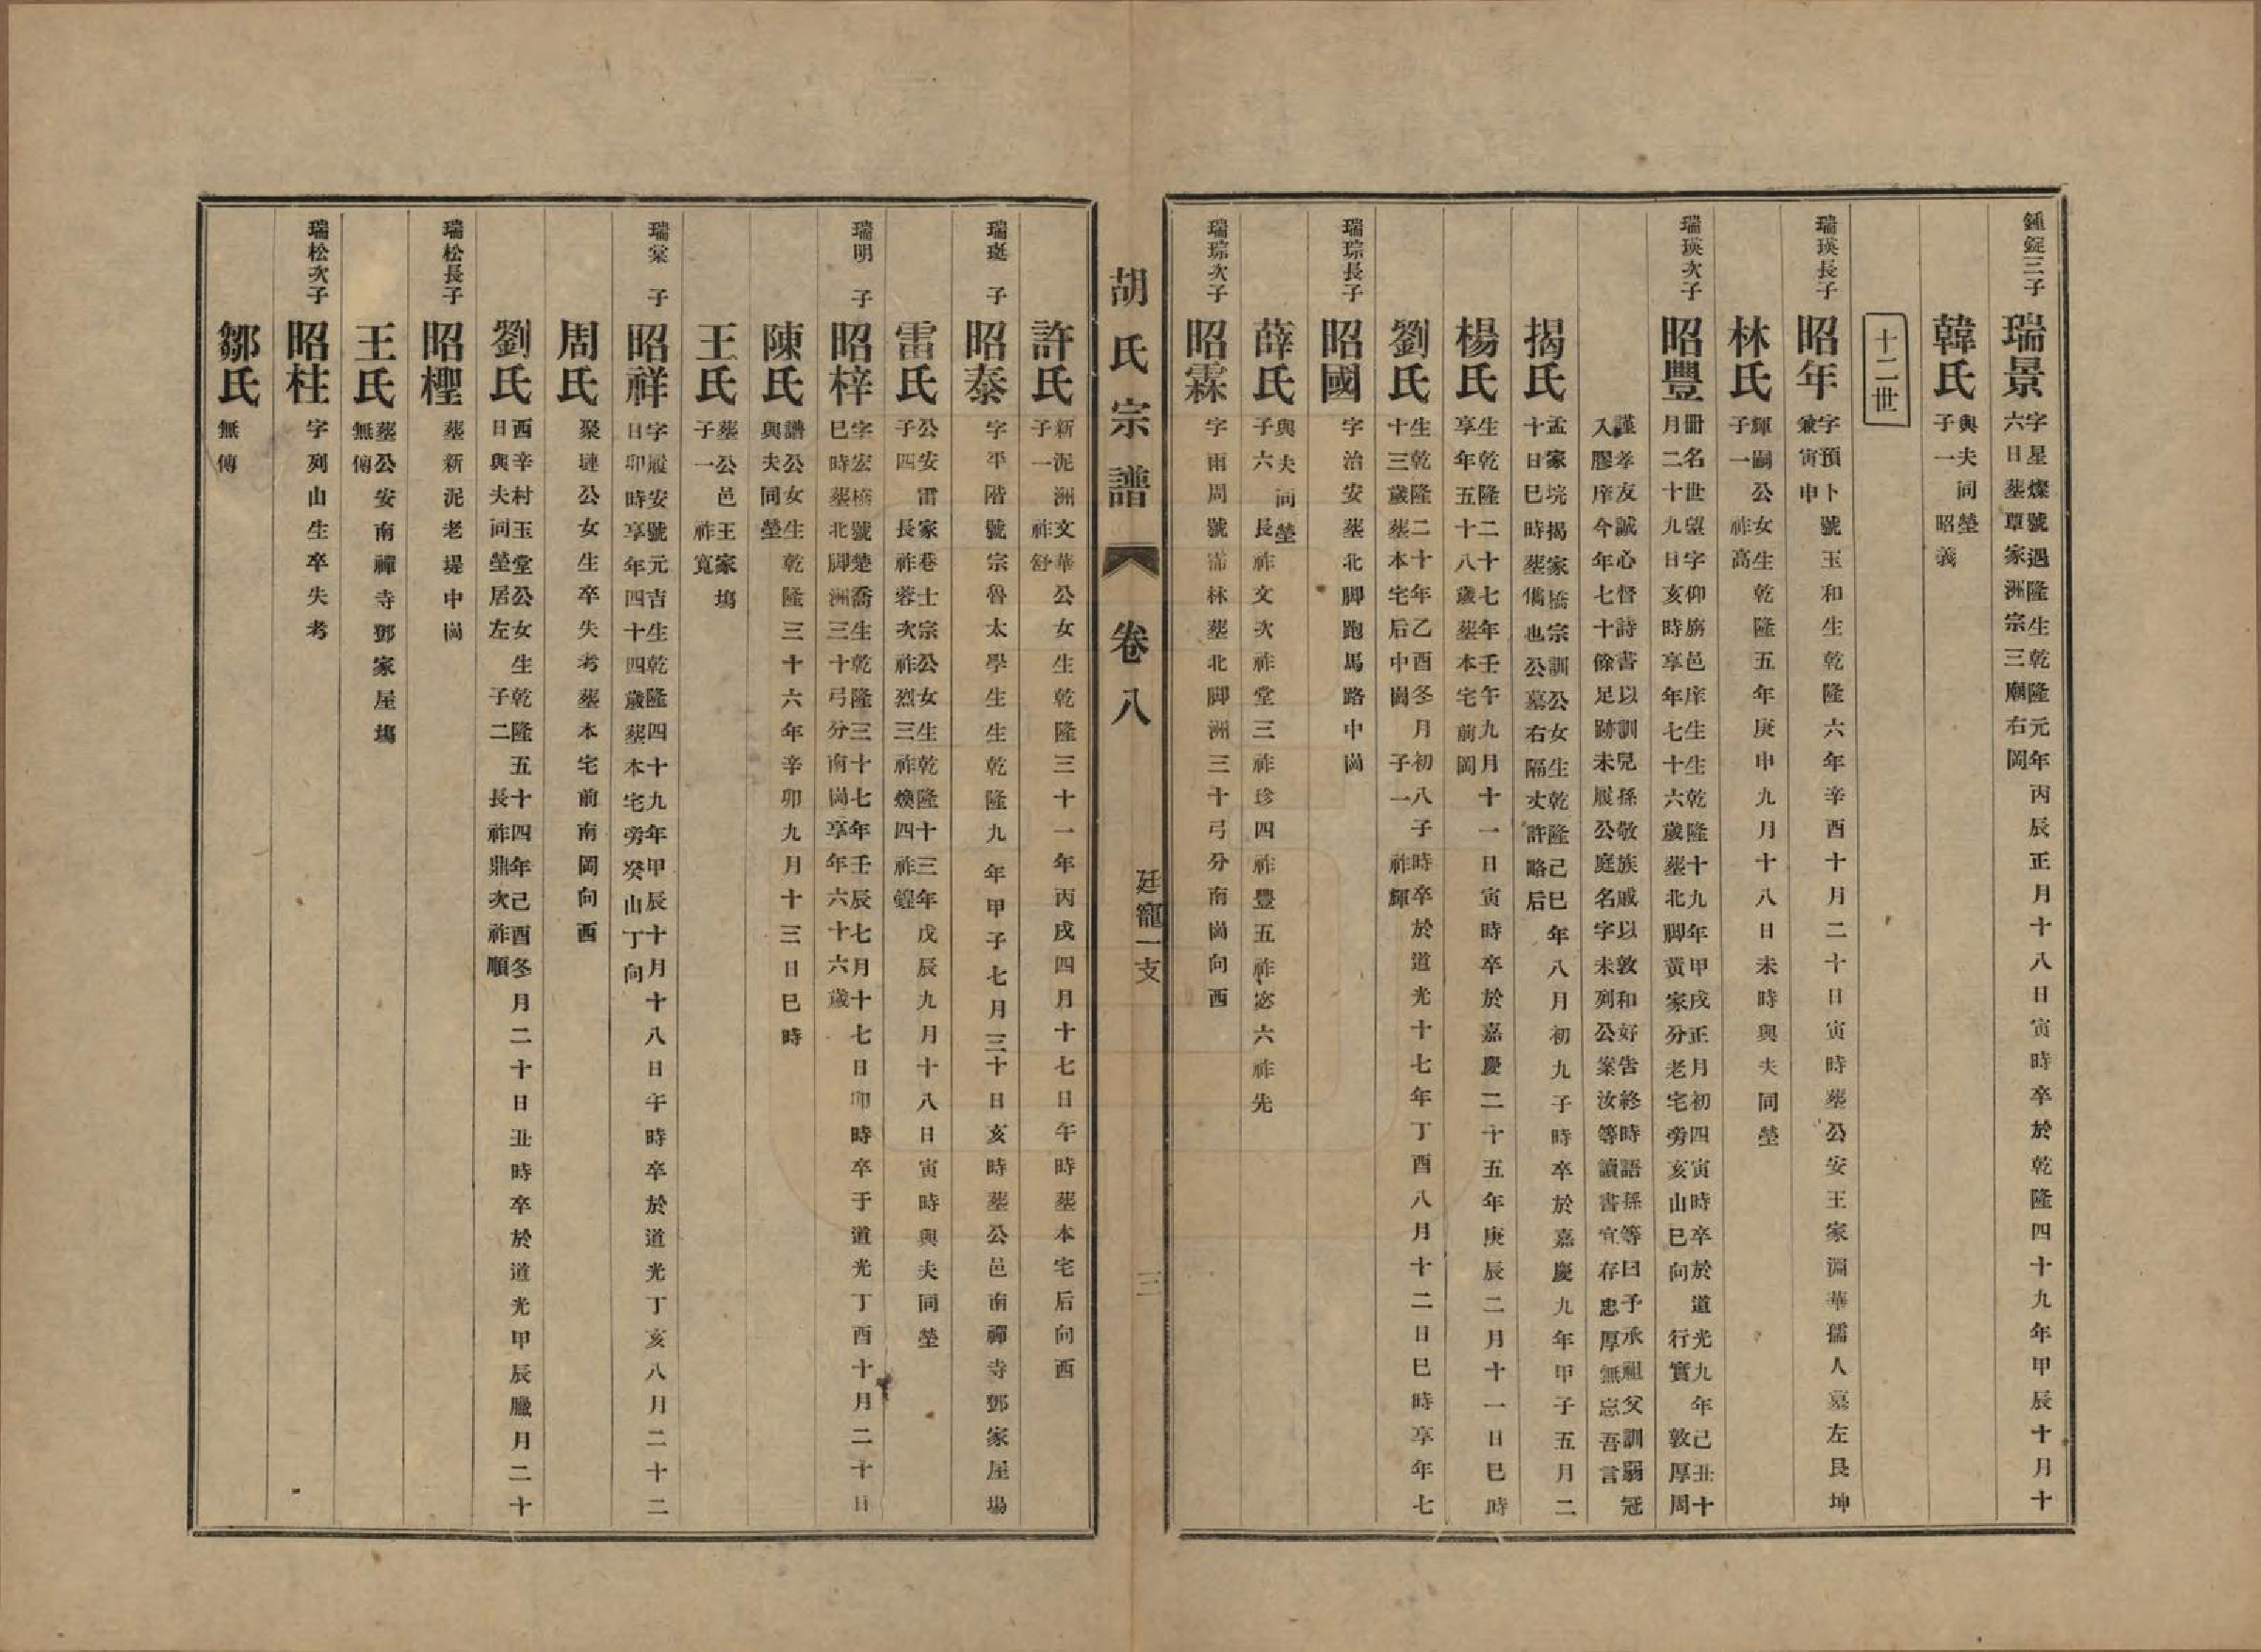 鍾錠三子
瑞景
字星燦號遇隆生乾隆元年丙辰正月十八日寅時卒於乾隆四十九年甲辰十月十
六日塟覃家洲宗三廟右岡
韓氏
與夫同塋
子一 昭義
十二世
瑞瑛長子
昭年
字預卜號玉和生乾隆六年辛酉十月二十日寅時塟公安王家淵華孺人墓左艮坤
兼寅申
林氏
輝嗣公女生乾隆五年庚申九月十八日未時與夫同塋
子一 祚高
瑞瑛次子
昭豐
冊名世望字仰廟邑庠生生乾隆十九年甲戌正月初四寅時卒於道光九年己丑十
月二十九日亥時享年七十六歲塟北脚黃家分老宅旁亥山巳向 行實 敦厚周
謹孝友誠心督詩書以訓兒孫敬族戚以敦和好告終時語孫等曰予承祖父訓弱冠
入膠庠今年七十餘足跡未履公庭名字未列公案汝等讀書宜存忠厚無忘吾言
揭氏
孟家垸揭家橋宗訓公女生乾隆己巳年八月初九子時卒於嘉慶九年甲子五月二
十日巳時塟僞也公墓右隔丈許略后
楊氏
生乾隆二十七年壬午九月十一日寅時卒於嘉慶二十五年庚辰二月十一日巳時
享年五十八歲塟本宅前岡
劉氏
生乾隆二十年乙酉冬月初八子時卒於道光十七年丁酉八月十二日巳時享年七
十三歲塟本宅后中崗 子一 祚輝
瑞琮長子
昭國
字治安塟北脚跑馬路中崗
薛氏
與夫同塋
子六 長祚文次祚堂三祚珍四祚豐五祚宓六祚先
瑞琮次子
昭霖
字雨周號霈林塟北脚洲三十弓分南崗向酉
胡氏宗譜 卷八 廷寵一支 三
許氏
新泥洲文華公女生乾隆三十一年丙戌四月十七日午時塟本宅后向酉
子一 祚舒
瑞珽 子
昭泰
字平階號宗魯太學生生乾隆九年甲子七月三十日亥時塟公邑南禪寺鄧家屋場
雷氏
公安雷家巷士宗公女生乾隆十三年戊辰九月十八日寅時與夫同塋
子四 長祚蓉次祚烈三祚煥四祚鍠
瑞明 子
昭梓
字宏橋號楚喬生乾隆三十七年壬辰七月十七日卯時卒于道光丁酉十月二十日
巳時塟北脚洲三十弓分南崗享年六十六歲
陳氏
譜公女生乾隆三十六年辛卯九月十三日巳時
與夫同塋
王氏
塟公邑王家塲
子一 祚寬
瑞棠 子
昭祥
字履安號元吉生乾隆四十九年甲辰十月十八日午時卒於道光丁亥八月二十二
日卯時享年四十四歲塟本宅旁癸山丁向
周氏
聚璉公女生卒失考塟本宅前南岡向酉
劉氏
西辛村玉堂公女生乾隆五十四年己酉冬月二十日丑時卒於道光甲辰臘月二十
日與夫同塋居左 子二 長祚鼎次祚順
瑞松長子
昭檉
塟新泥老堤中崗
王氏
塟公安南禪寺鄧家屋塲
無傳
瑞松次子
昭柱
字列山生卒失考
鄒氏
無傳